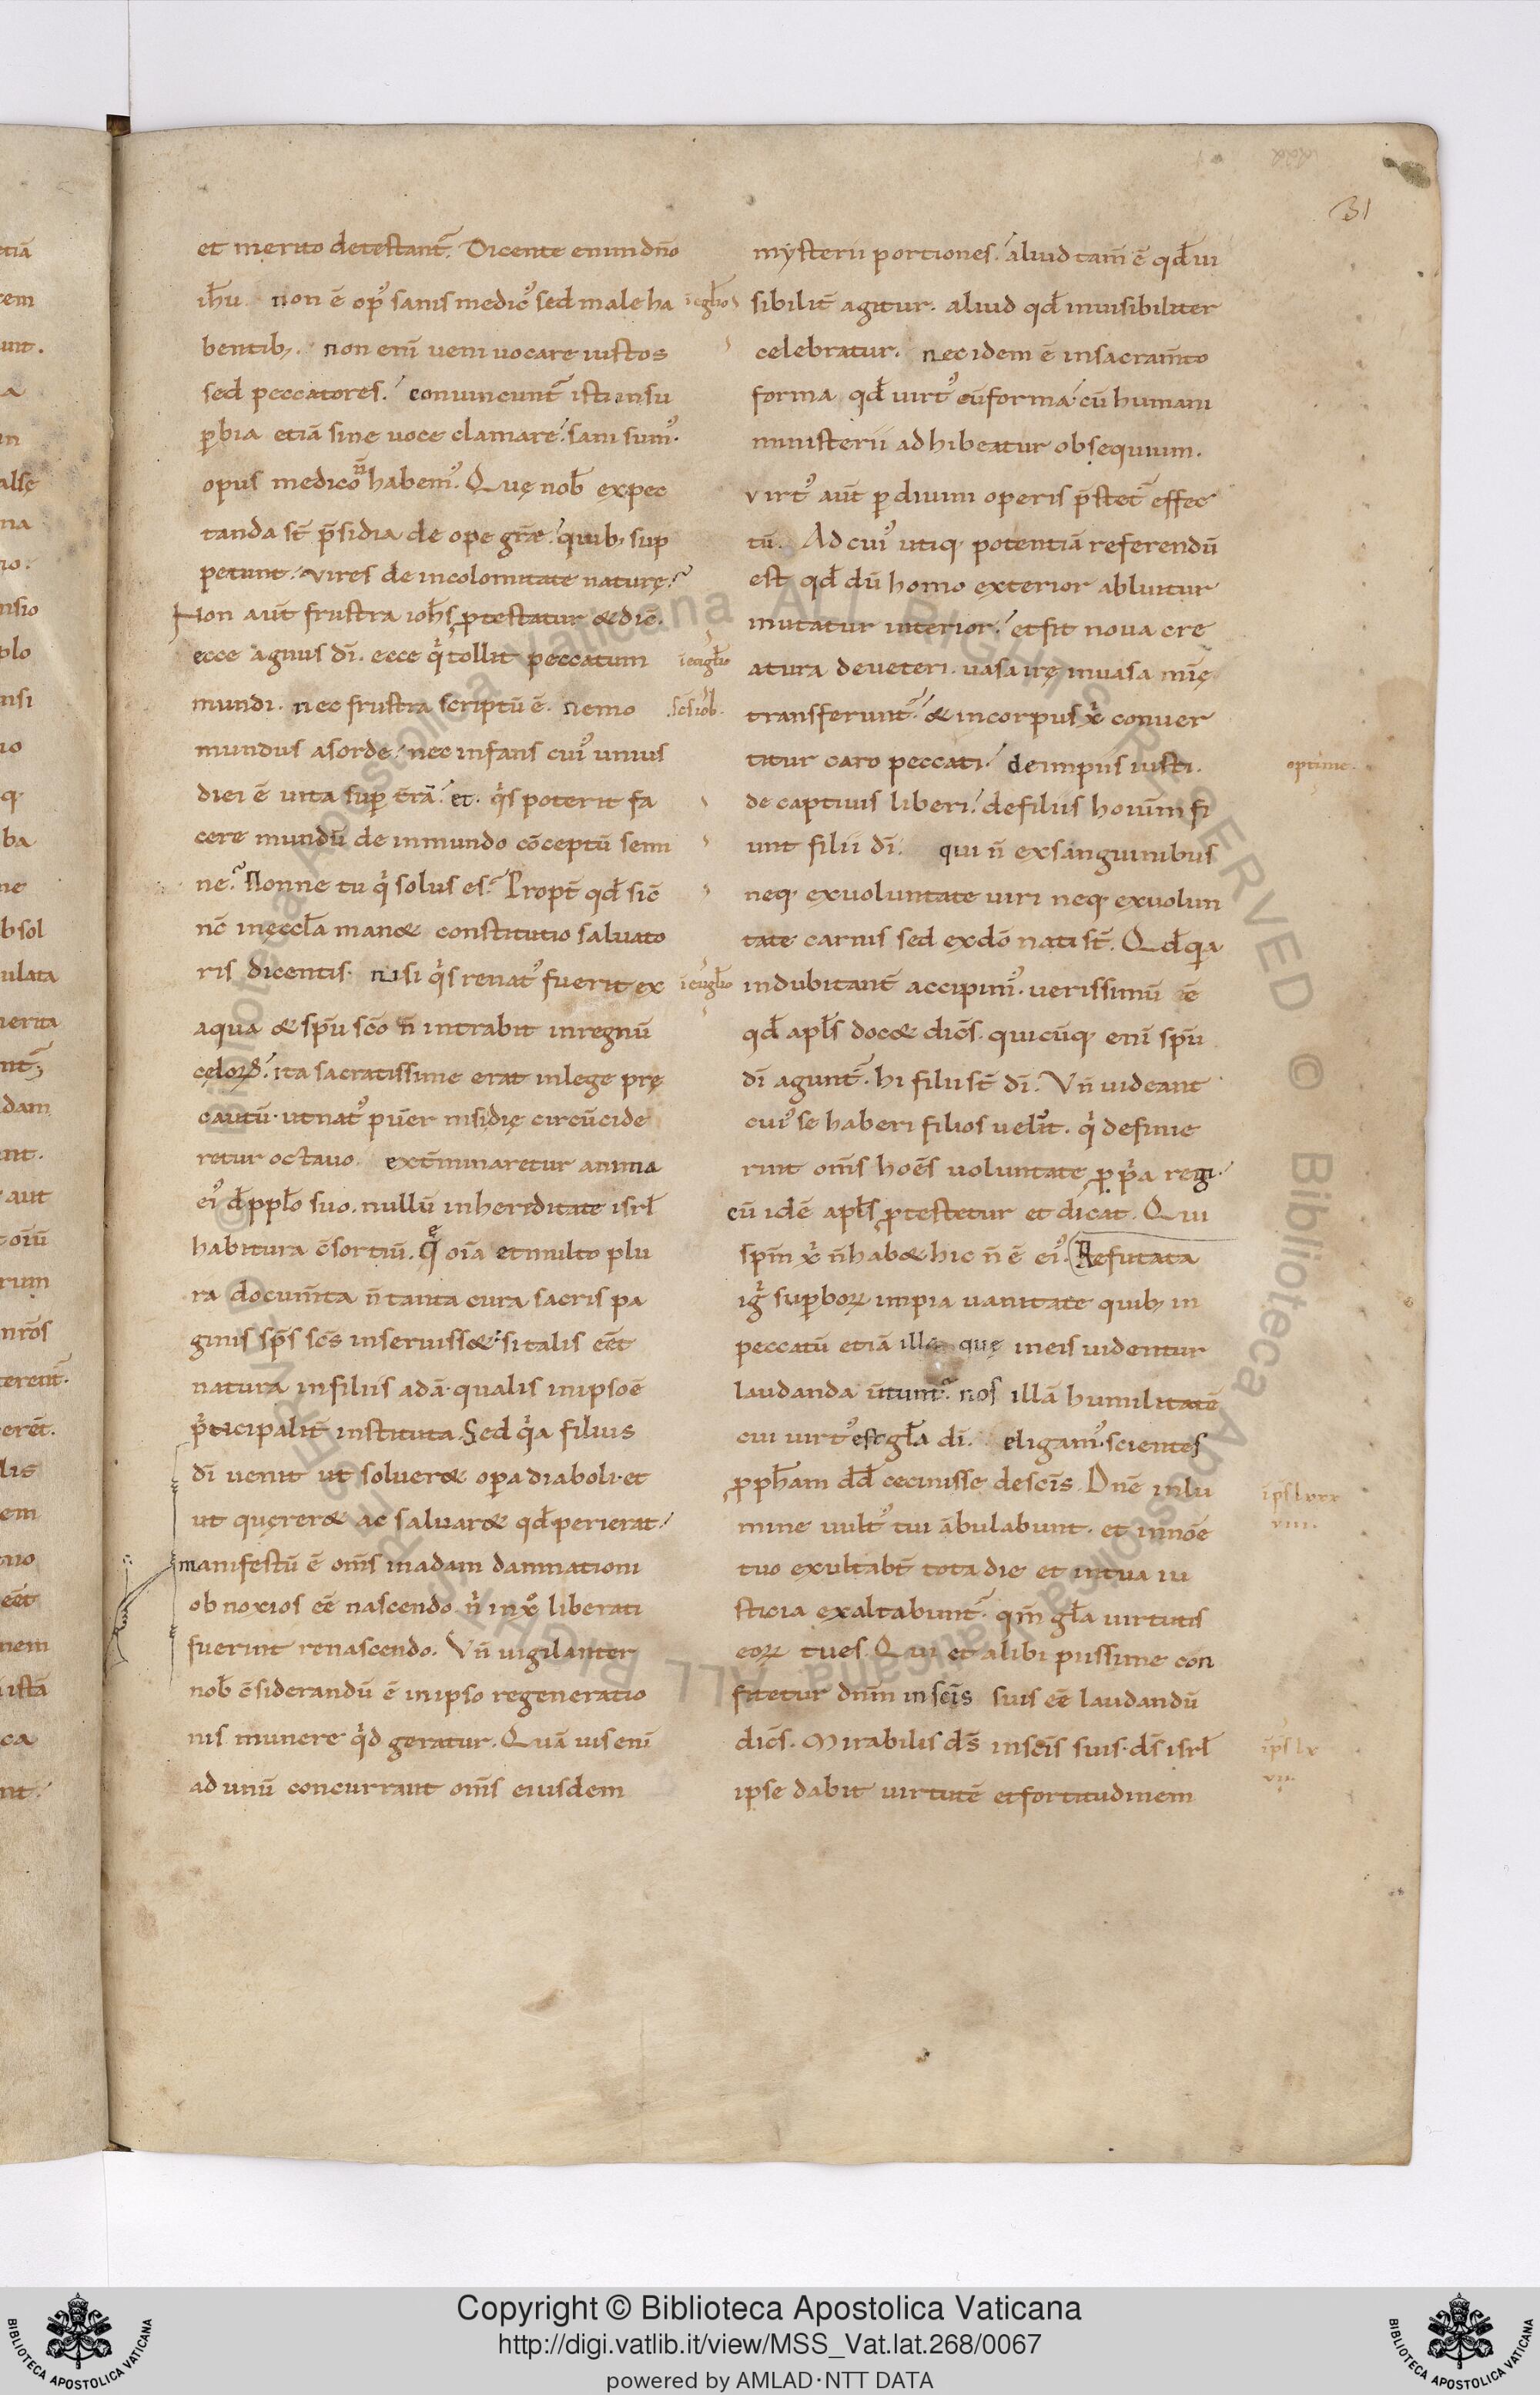 31
et merito detestant᷑. Dicente enim dn̄o
ih̄u. non ē op᷒ sanis medic᷒ sed male ha
bentib;. non eni̅ veni vocare iustos
sed peccatores. convincunt᷑ isti insu
ꝑbia etiā sine voce clamare. sani sum᷒.
opus medico n̄ habem᷒. Quę nob̄ expec
tanda st̄ p̄sidia de ope gr̄æ. quib; sup
petunt vires de incolomitate naturę.
Non aut̄ frustra ioh̄s ꝓtestatur & dic̄.
ecce agnus dī. ecce qͥ tollit peccatum
mundi. nec frustra scriptū ē. nemo
mundus asorde. nec infans cui᷒ unius
diei ē vita suꝑ t̄rā. et. qͥs poterit fa
cere mundū de inmundo cōceptū semi
ne. Nonne tu qͥ solus es. Propt̄ qd̄ sic̄
nc̄ ineccl̄a man& constitutio salvato
ris dicentis. nisi qͥs renat᷒ fuerit ex
aqua & sp̄u sc̄o n̄ intrabit inregnū
cęloꝝ. ita sacratissime erat inlege prę
cautū. utnat᷒ puer nisidię circūcide
retur octavo. ext̄minaretur anima
ei᷒ d̄ pplo̅ suo. nullū inhereditate isrl̄
habitura c̄sortiū. Q̄ oi̅a et multo plu
ra docum̄ta n̄ tanta cura sacris pa
ginis sp̄s sc̄s inseruiss& si talis eēt
natura infiliis adā. qualis inipsoē
pͥncipalit̄ instituta. Sed qͥa filius
dī venit ut solver& oꝑa diaboli. et
ut quęrer& ac salvar& qd̄ perierat.
manifestū ē om̄s inadam damnationi
obnoxios eē nascendo. nͥ inxͦ liberati
fuerint renascendo. Vn̄ vigilanter
nob̄ c̄siderandū ē inipso regeneratio
nis munere qͥd geratur. Quāvis eni̅
ad unū concurrant om̄s eiusdem
mysterii portiones. aliud tam̄ ē qd̄ vi
sibilit̄ agitur. aliud qd̄ invisibiliter
celebratur. nec idem ē insacram̄to
forma qd̄ virt᷒ cū forma. cū humani
ministerii adhibeatur obsequium.
virt᷒ aut̄ ꝑ divini operis p̄stet᷑ effec
tū. Ad cui᷒ utiq; potentiā referendū
est qd̄ dū homo exterior abluitur
mutatur interior. et fit nova cre
atura deveteri. vasa irę invasa mi̅ę
transferunt᷑. & incorpus xͥ conver
titur caro peccati. deimpiis iusti.
de captivis liberi. defiliis hominū fi
unt filii dī. qui n̄ exsanguinibus
neq; exvoluntate viri neq; exvolun
tate carnis sed exdō nati st̄. Qd̄ qͥa
indubitant̄ accipim᷒. verissimū ē
qd̄ apl̄s doc& dic̄s. quicūq; eni̅ sp̄u
dī agunt᷑. hi filii st̄ dī. Vn̄ videant
cui᷒ se haberi filios velīt. qͥ definie
rint om̄s hoēs voluntate ꝓpͥa regi.
cū idē apl̄s ꝓtestetur et dicat. Qui
sp̄m xͥ n̄ hab& hic n̄ ē ei᷒. Refutata
igͥ suꝑboꝝ impia vanitate quib; in
peccatū etiā illa quę ineis videntur
laudanda ūtunt᷑. nos illā humilitatē
cui virt᷒ est gl̄a dī. eligam᷒. scientes
ꝓph̄am dd̄ cecinisse desc̄is. Dn̄e inlu
mine vult᷒ tui ābulabunt. et innoīe
tuo exultabt̄ tota die et intua iu
sticia exaltabunt᷑. qm̄ gl̄a virtutis
eoꝝ tu es. Qui et alibi piissime con
fitetur dn̄m in sc̄is suis eē laudandū
dic̄s. Mirabilis ds̄ insc̄is suis. ds̄ isrl̄
ipse dabit virtutē et fortitudinem
optime.
Copyright © Biblioteca Apostolica Vaticana
http://digi.vatlib.it/view/MSS_Vat.lat.268/0067
powered by AMLAD·NTT DATA
BIBLIOTECA APOSTOLICA VATICANA
BIBLIOTECA APOSTOLICA VATICANA